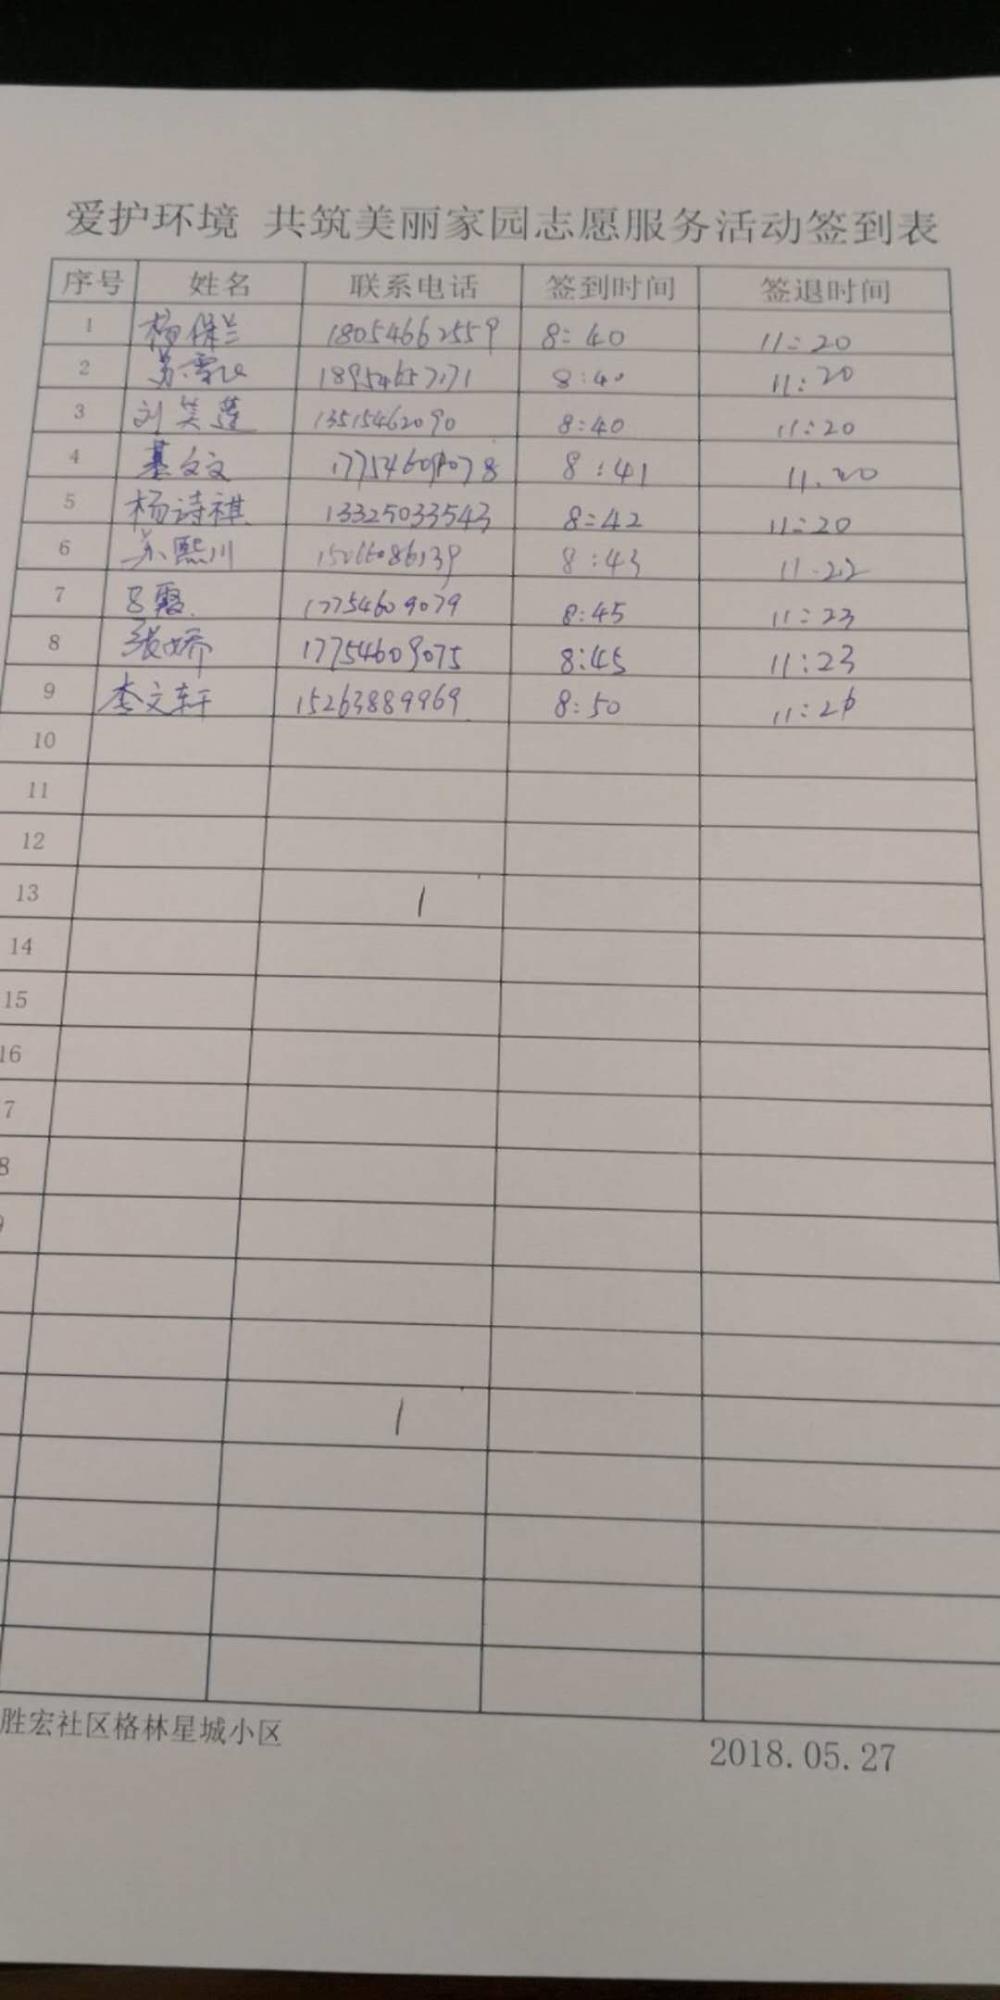 爱护环境 共筑美丽家园志愿服务活动签到表
序号 姓名 联系电话 签到时间 签退时间
1 杨保兰 18054662559 8:40 11:20
2 8:40 11:20
3 刘笑莲 13515462090 8:40 11:20
4 17754609078 8:41 11.20
5 杨诗祺 13325033543 8:42 11:20
6 苏熙川 15066086139 8:43 11.22
7 吕霞 17754609079 8:45 11:23
8 张娇 17754609075 8:45 11:23
9 李文轩 15263889969 8:50 11:26
10
11
12
13
14
15
16
7
8
胜宏社区格林星城小区
2018.05.27